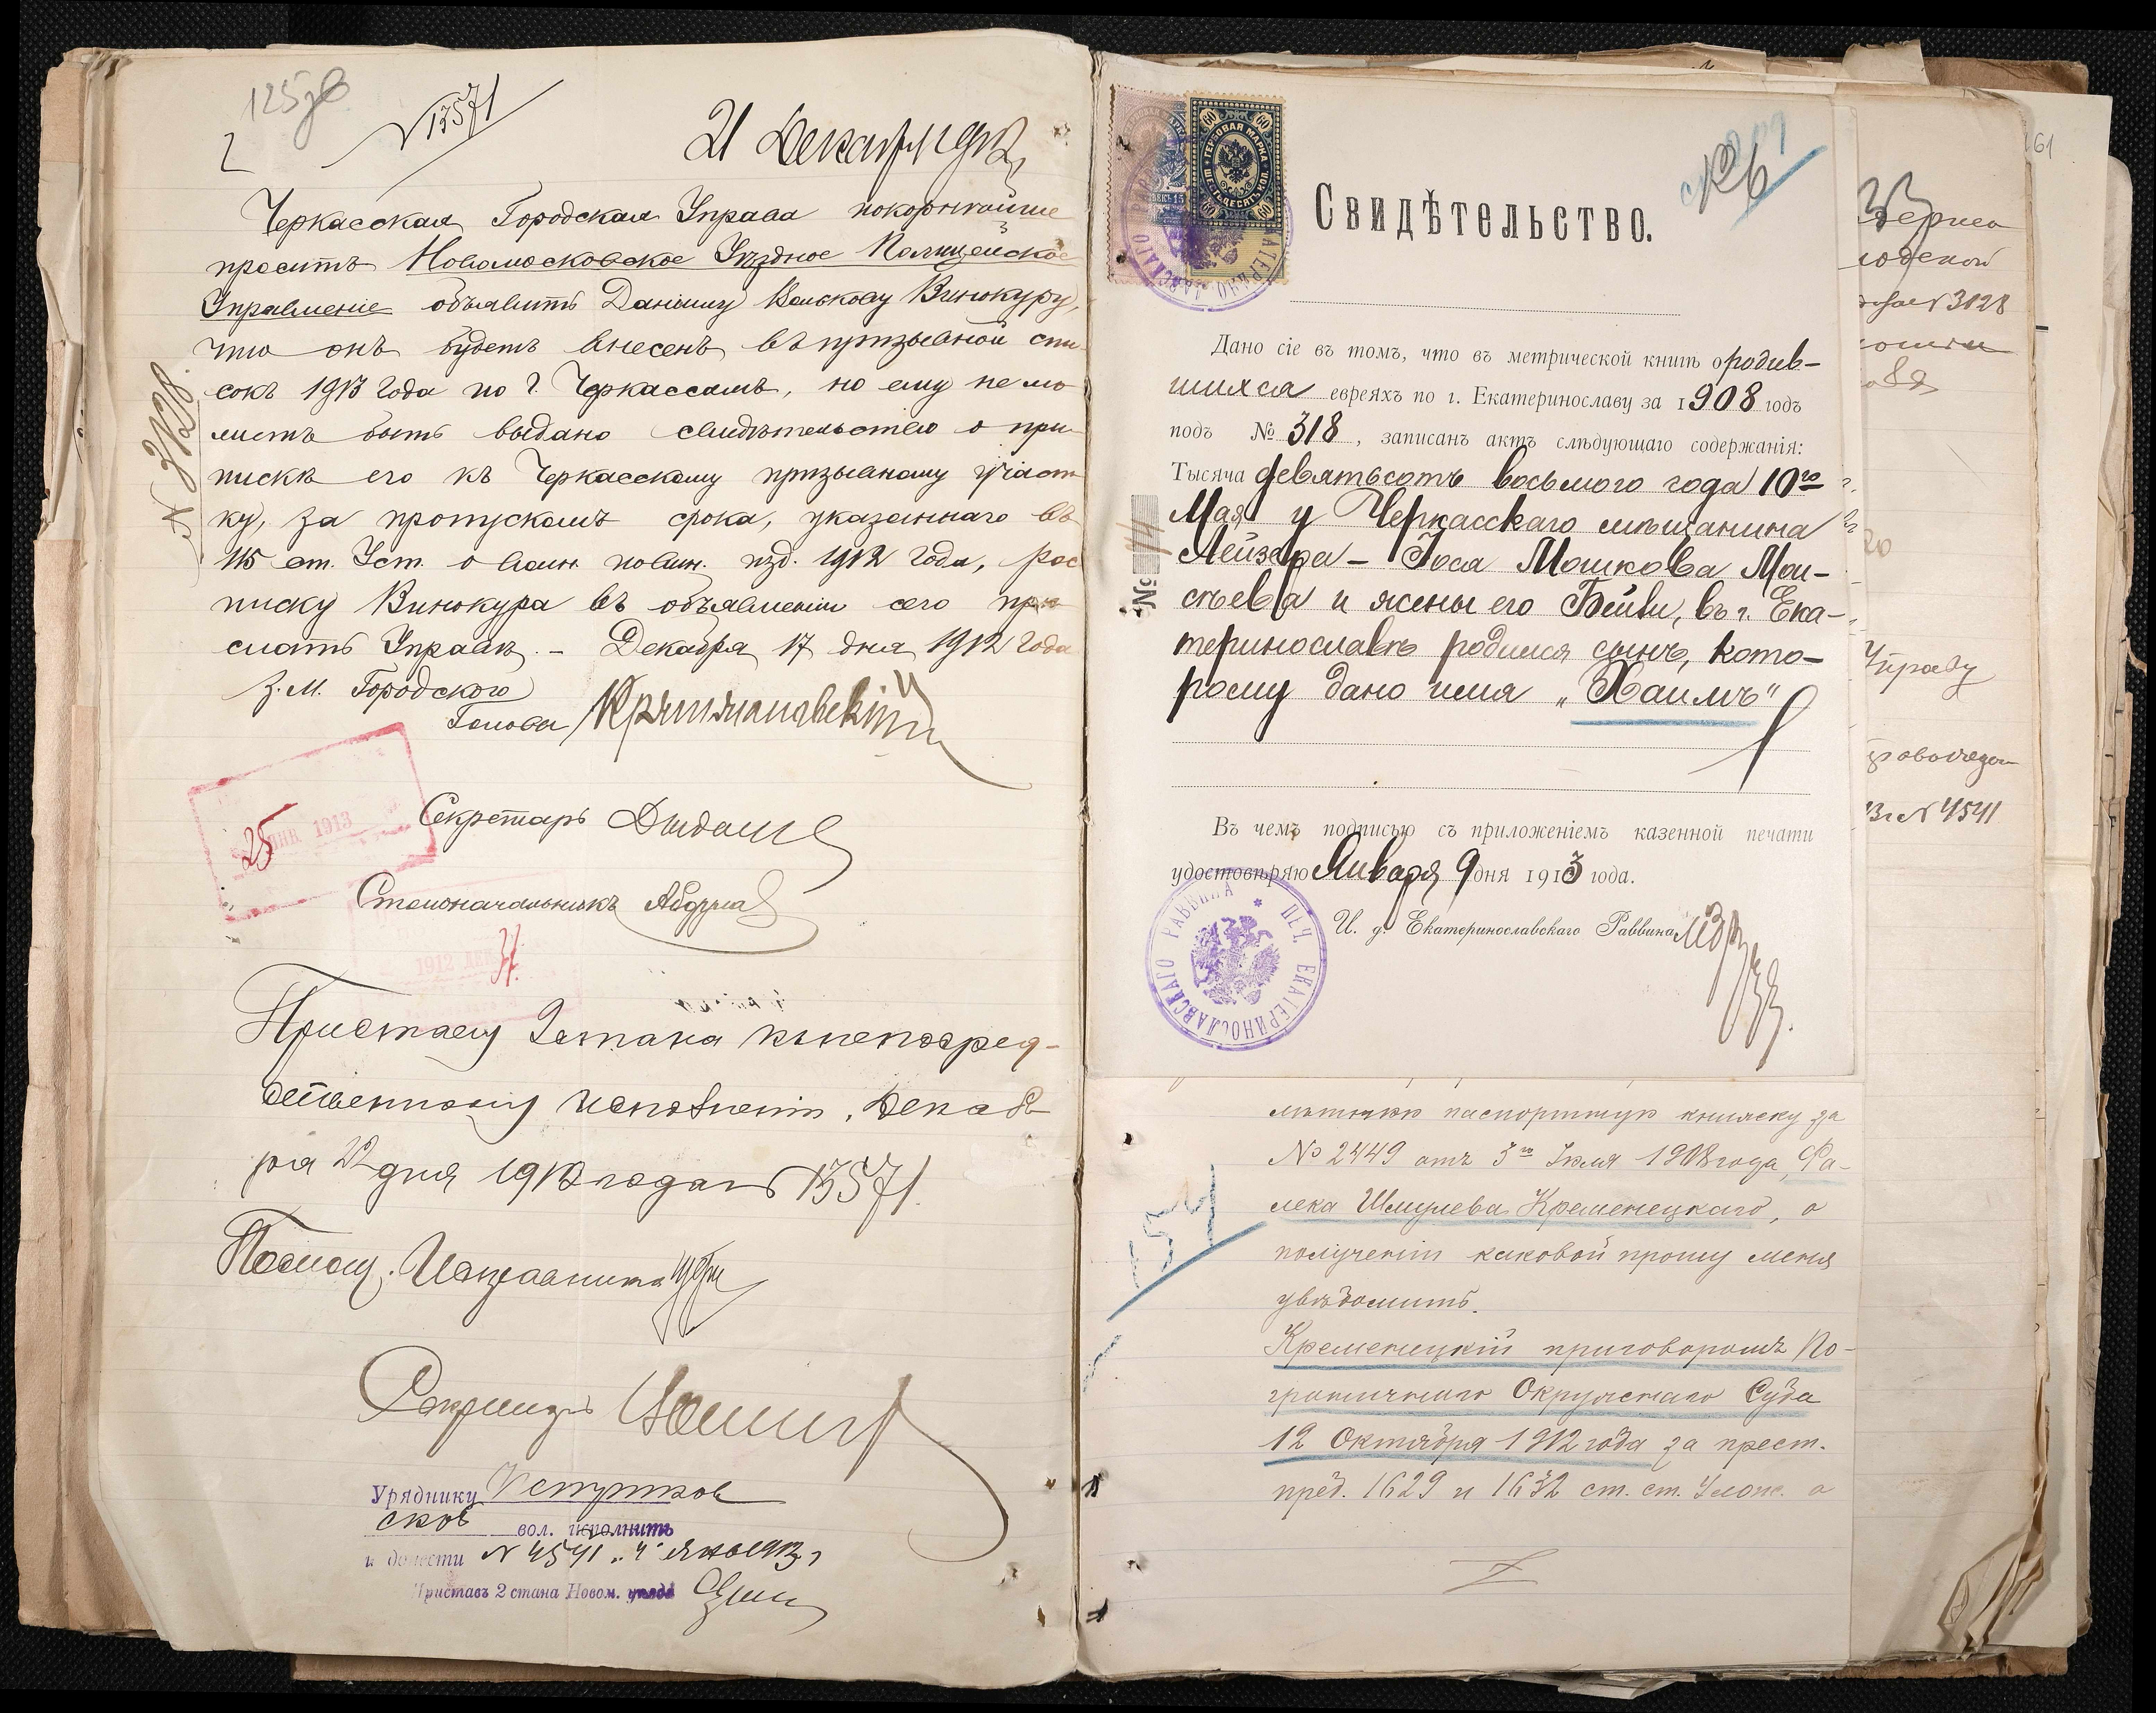 125
№ 13571
21 Декабря 1912
Черкасская Городская Управа покорнѣйше
проситъ Новомосковское Уѣздное Полицейское
Управленіе объявить Даніилу Волькову Винокуру,
что онъ будетъ внесенъ въ призывной спи-
сокъ 1913 года по г. Черкассамъ, но ему не мо
жетъ быть выдано свидѣтельство о при-
пискѣ его къ Черкасскому призывному участ
ку, за пропускомъ срока, указаннаго въ
115 ст. Уст. о воин. повин. изд. 1912 года, рос
писку Винокура въ объявленіи сего при
слать Управѣ. – Декабря 17 дня 1912 года
№ 3128.
З. М. Городского
Головы
Секретарь
25 ЯНВ 1913
Столоначальникъ
1912 ДЕК
Приставу 2 стана къ непосред-
ственному исполненію. Декаб
ря 22 дня 1912 года № 13571.
Помощ. Исправника
Секретарь
Уряднику
ской вол. исполнить
и донести № 4541 „4" янв 1913 г
Приставъ 2 стана Новом. уѣзда
ГЕРБОВАЯ МАРКА
ШЕСТЬДЕСЯТЪ КОП.
60 60
60 60
Свидѣтельство.
Дано сіе въ томъ, что въ метрической книгѣ о родив-
шихся евреяхъ по г. Екатеринославу за 1908 годъ
подъ № 318, записанъ актъ слѣдующаго содержанія:
Тысяча девятьсотъ восьмого года 10го
Мая у Черкасскаго мѣщанина
Лейзера – Іося Мошкова Мои-
сѣева и жены его Бейли, въ г. Ека-
теринославѣ родился сынъ, кото-
рому дано имя „Хаимъ"
№
Въ чемъ подписью съ приложеніемъ казенной печати
удостовѣряю Января 9 дня 1913 года.
И. д. Екатеринославскаго Раввина
ПЕЧ. ЕКАТЕРИНОСЛАВСКАГО РАВВИНА
лѣтнюю паспортную книжку за
№ 2449 отъ 3го Іюля 1908 года, Фа-
лека Шмулева Кременецкаго, о
полученіи каковой прошу меня
увѣдомить.
Кременецкій приговоромъ По-
граничнаго Окружнаго Суда
12 Октября 1912 года за прест.
пред. 1629 и 1632 ст. ст. Улож. о
154
61
№ 3128
Управу
№ 4541